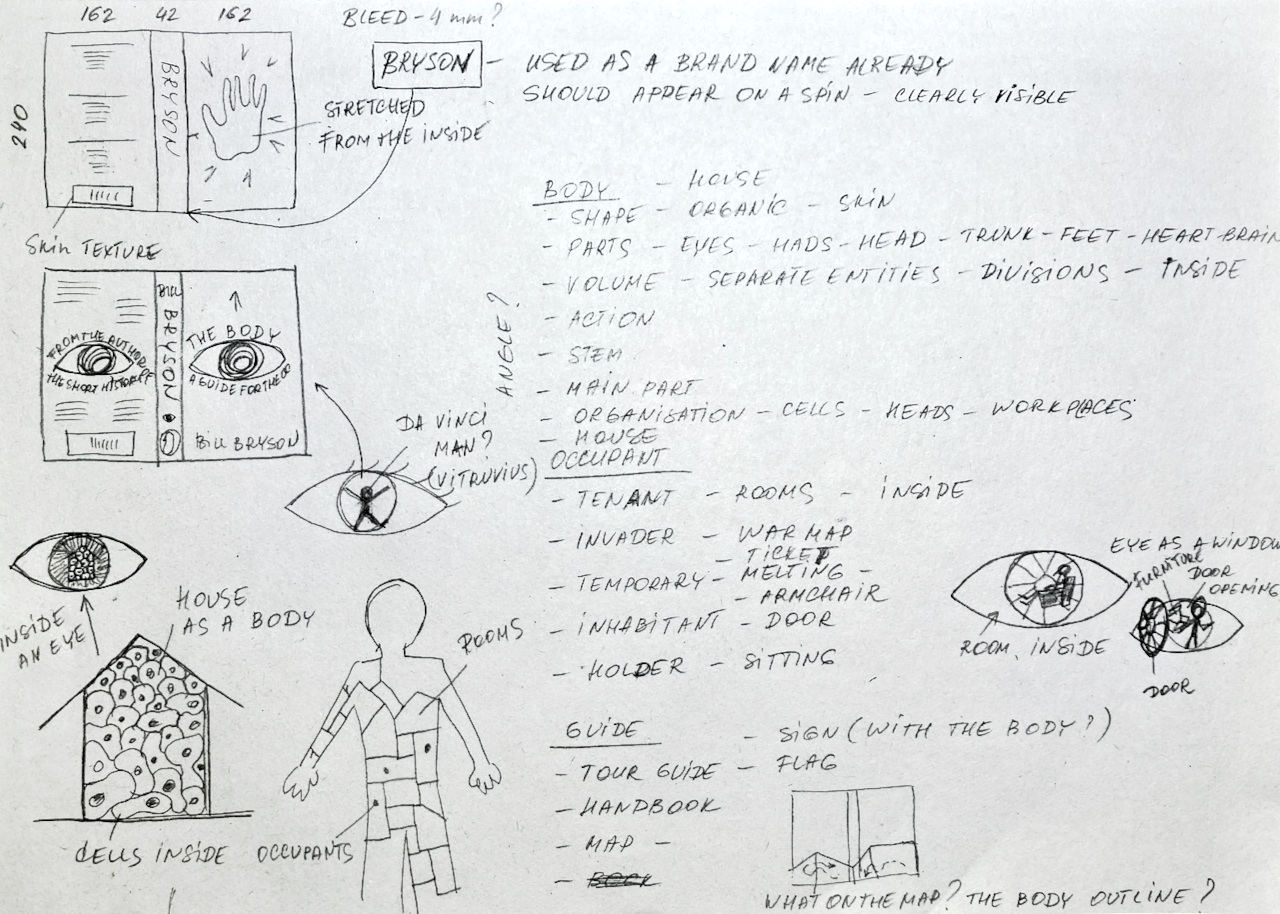 162 42 162
BLEED - 4 mm?
240
BRYSON
BRYSON - USED AS A BRAND NAME ALREADY
SHOULD APPEAR ON A SPIN - CLEARLY VISIBLE
STRETCHED
FROM THE INSIDE
SKIN TEXTURE
FROM THE AUTHOR
THE SHORT HISTORY OF
BILL BRYSON
THE BODY
A GUIDE FOR THE OC
BILL BRYSON
DA VINCI
MAN?
(VITRUVIUS)
INSIDE
AN EYE
HOUSE
AS A BODY
CELLS INSIDE
ROOMS
OCCUPANTS
ANGLE?
BODY - HOUSE
- SHAPE - ORGANIC - SKIN
- PARTS - EYES - HADS - HEAD - TRUNK - FEET - HEART - BRAIN
- VOLUME - SEPARATE ENTITIES - DIVISIONS - INSIDE
- ACTION
- STEM
- MAIN PART
- ORGANISATION - CELLS - HEADS - WORKPLACES
- HOUSE
OCCUPANT
- TENANT - ROOMS - INSIDE
- INVADER - WAR MAP
- TICKET
- TEMPORARY - MELTING -
- ARMCHAIR
- INHABITANT - DOOR
- HOLDER - SITTING
GUIDE - SIGN (WITH THE BODY?)
- TOUR GUIDE - FLAG
- HANDBOOK
- MAP -
- BOOK
WHAT ON THE MAP? THE BODY OUTLINE?
ROOM INSIDE
EYE AS A WINDOW
FURNITURE
DOOR
OPENING
DOOR